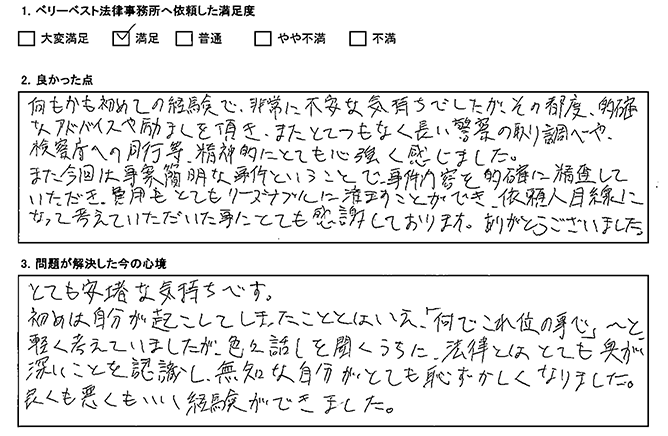 1. ベリーベスト法律事務所へ依頼した満足度
大変満足 満足 普通 やや不満 不満
2. 良かった点
何もかも初めての経験で、非常に不安な気持ちでしたが、その都度、的確
なアドバイスや励ましを頂き、またとてつもなく長い警察の取り調べや、
検察庁への同行等、精神的にとても心強く感じました。
また今回は事案簡明な事件ということで、事件内容を的確に精査して
いただき、費用もとてもリーズナブルに済ますことができ、依頼人目線に
なって考えていただいた事にとても感謝しております。ありがとうございました。
3. 問題が解決した今の心境
とても安堵な気持ちです。
初めは自分が起こしてしまったこととはいえ、「何でこれ位の事で」〜と、
軽く考えていましたが、色々話しを聞くうちに、法律とはとても奥が
深いことを認識し、無知な自分がとても恥ずかしくなりました。
良くも悪くもいい経験ができました。